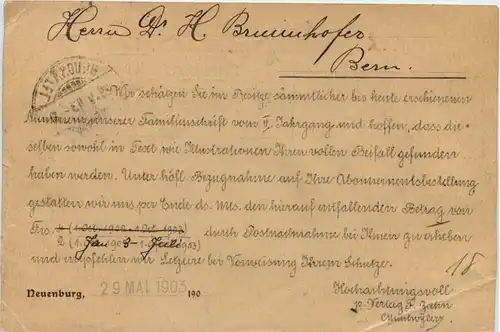 Herrn Dr. H. Brunnhofer
Bern.
Wir schätzen Sie im Besitze sämmtlicher bis heute erschienenen
Nummern unserer Familienschrift vom II. Jahrgang und hoffen, dass die-
selben sowohl in Text wie Illustrationen Ihren vollen Beifall gefunden
haben werden. Unter höfl. Bezugnahme auf Ihre Abonnementsbestellung
gestatten wir uns per Ende ds. Mts. den hierauf entfallenden Betrag von
Frs.
durch Postnachnahme bei Ihnen zu erheben
und empfehlen wir Letztere bei Vorweisung Ihrem Schutze.
18
Neuenburg, 29 MAI 1903 190
Hochachtungsvoll
p. Verlag F. Zahn